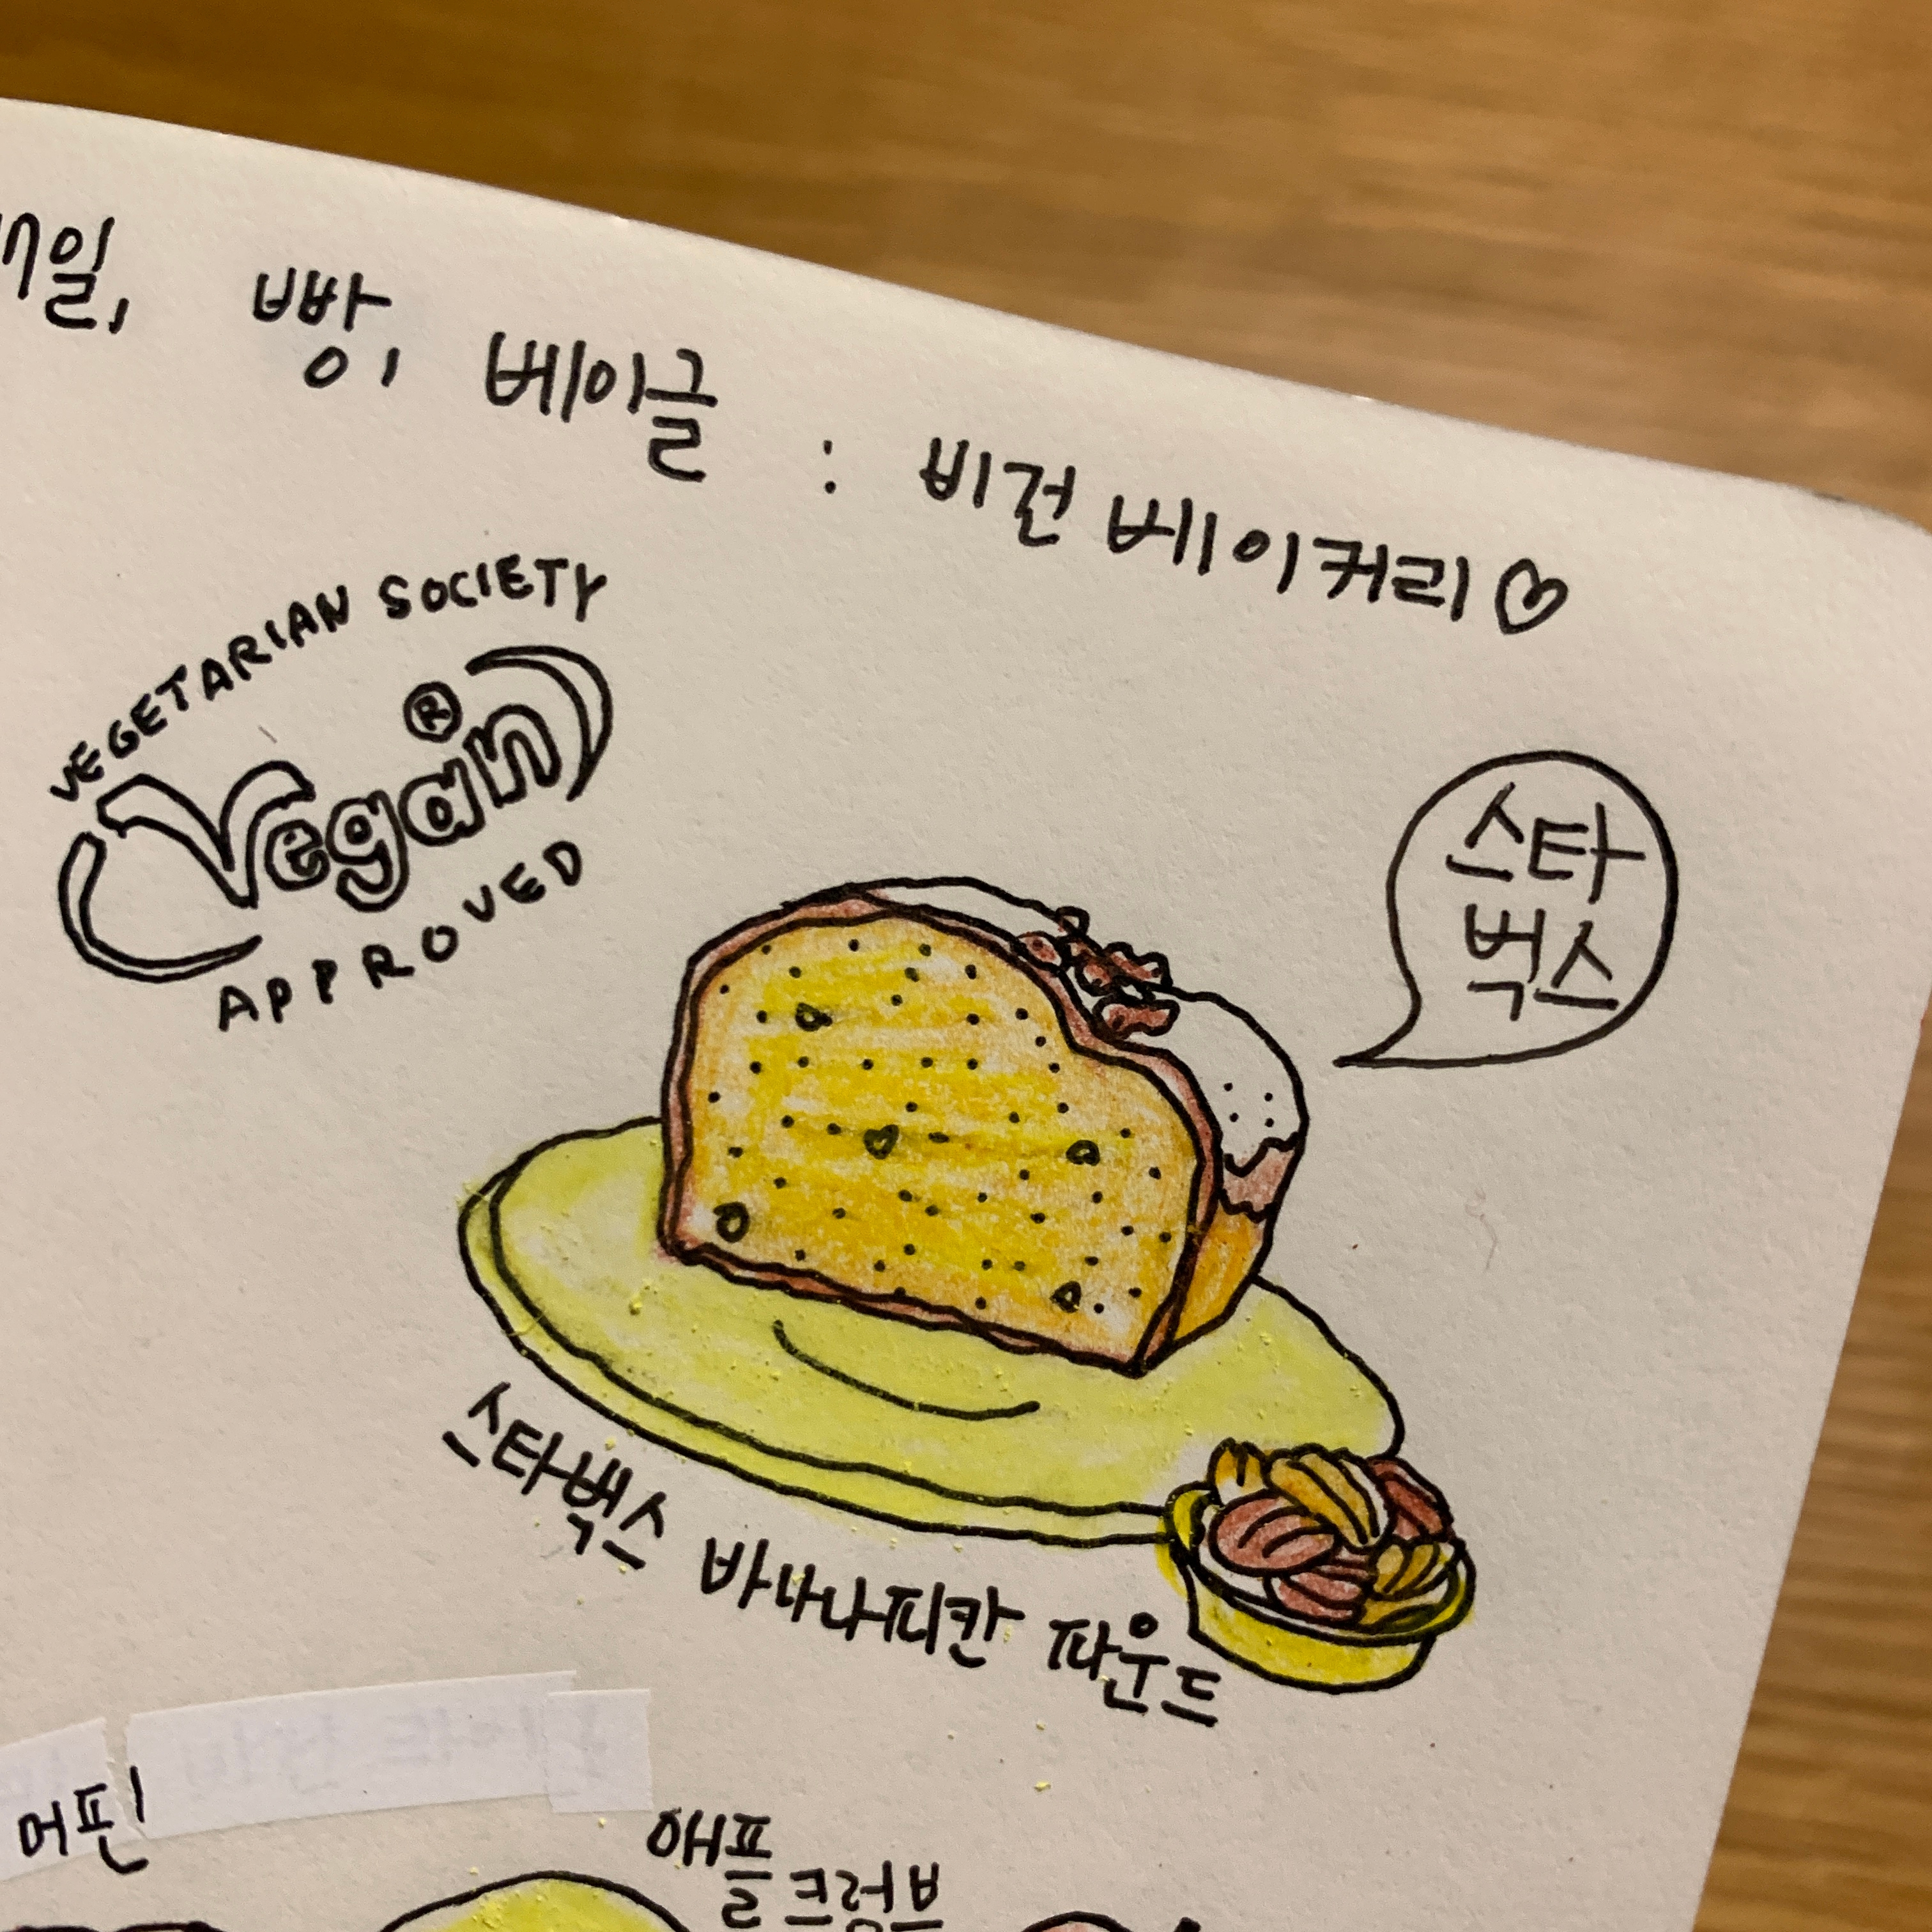 매일, 빵, 베이글 : 비건 베이커리♡
VEGETARIAN SOCIETY
Vegan®
APPROVED
스타
벅스
스타벅스 바나나피칸 파운드
머핀!
애플
크럼블